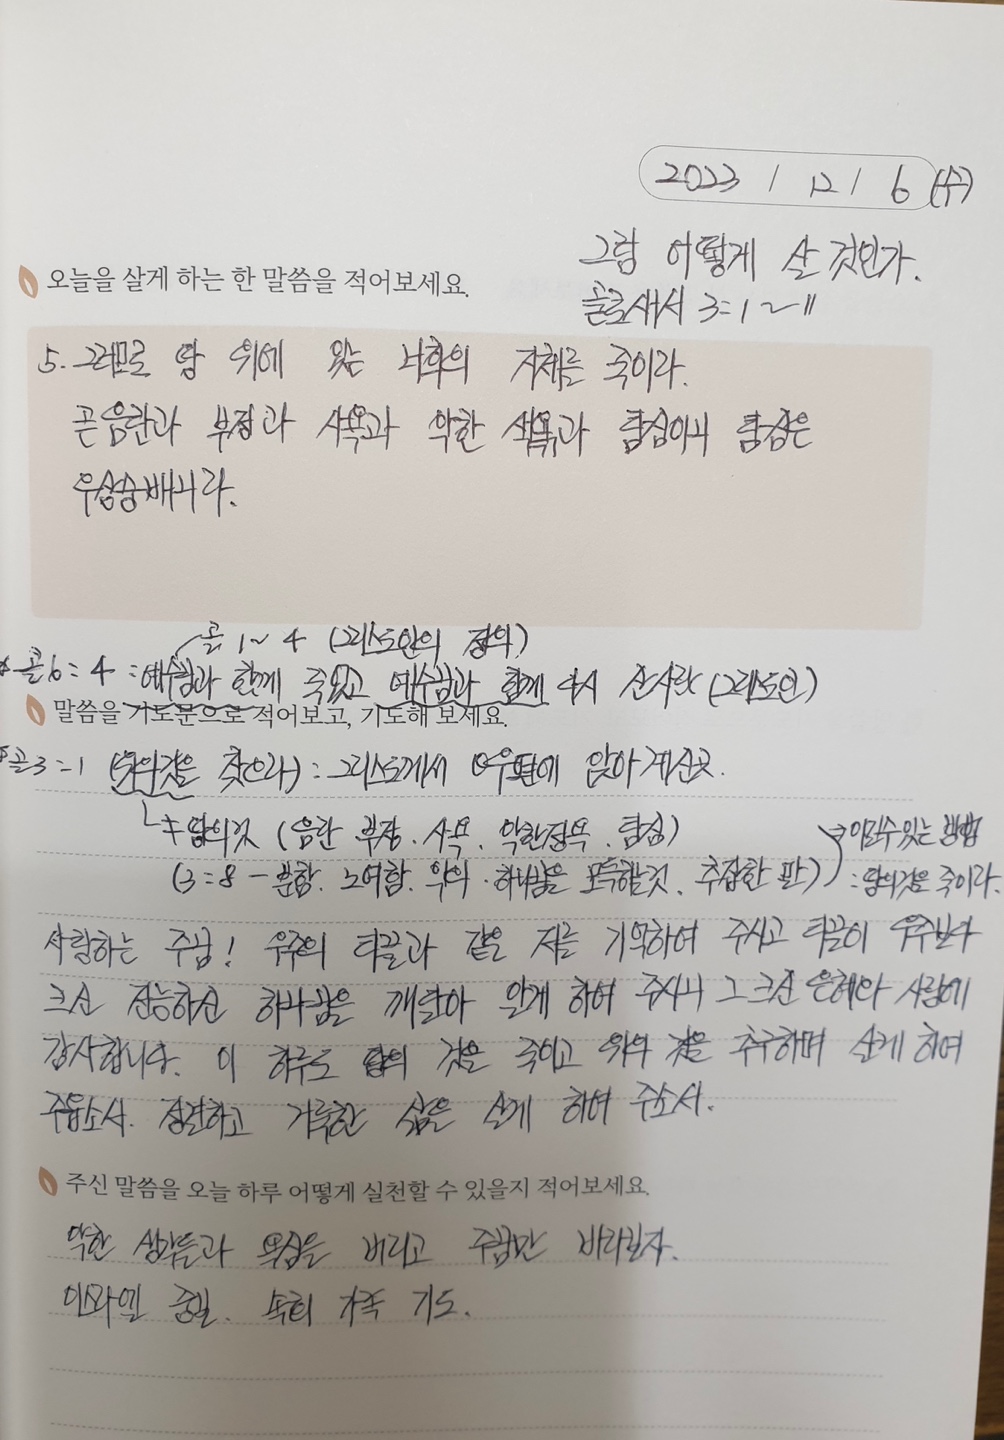 2023 / 12 / 6 (수)
그럼 어떻게 살 것인가.
오늘을 살게 하는 한 말씀을 적어보세요.
골로새서 3:1~11
5. 그러므로 땅 위에 있는 너희의 지체를 죽이라.
곧 음란과 부정과 사욕과 악한 색욕과 탐심이니 탐심은
우상숭배니라.
골 1~4 (그리스도인의 정의)
골6:4 : 예수님과 함께 죽었고 예수님과 함께 다시 산 사람 (그리스도인)
말씀을 기도문으로 적어보고, 기도해 보세요.
골3:1 (위의것을 찾으라) : 그리스도께서 우편에 앉아 계신곳.
≠ 땅의것 (음란. 부정. 사욕. 악한정욕. 탐심)
이길수있는 방법
(3:8 - 분함. 노여함. 악의. 하나님을 모독하는것. 추잡한 말) : 땅의것을 죽이라.
사랑하는 주님! 우주의 티끌과 같은 저를 기억하여 주시고 티끌이 우주보다
크신 전능하신 하나님을 깨달아 알게 하여 주시니 그 크신 은혜와 사랑에
감사합니다. 이 하루도 땅의 것을 죽이고 위의 것을 추구하며 살게 하여
주옵소서. 경건하고 거룩한 삶을 살게 하여 주소서.
주신 말씀을 오늘 하루 어떻게 실천할 수 있을지 적어보세요.
악한 생각들과 욕심을 버리고 주님만 바라보자.
종일. 속히 가족 기도.